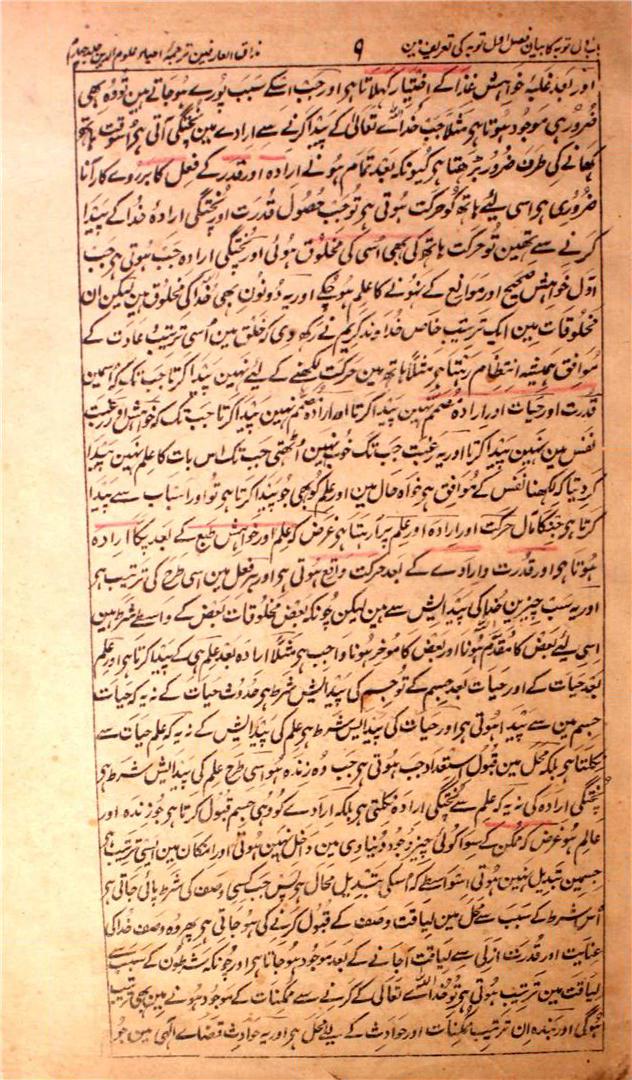 باب اول توبہ کا بیان فصل اول توبہ کی تعریف مین ۹ مذاق العارفین ترجمۂ احیاء علوم الدین جلد چہارم
اور بعد غلبہ خواہش غذا کے اختیار کہلاتا ہی اور جب اسکے سبب پورے ہوجاتے ہین تو وہ بھی
ضرور ہی موجود ہوتا ہی مثلاً جب خدا ے تعالیٰ کے پیدا کرنے سے ارادے مین پختگی آتی ہی اسوقت ہاتھ
کھانے کی طرف ضرور بڑھتا ہی کیونکہ بعد تمام ہونے ارادہ اور قدر کے فعل کا بر روے کار آنا
ضروری ہی اسی لیے ہاتھ کو حرکت ہوتی ہی تو جب حصول قدرت اور پختگی ارادہ خدا کے پیدا
کرنے سے تھین تو حرکت ہاتھ کی بھی اسی کی مخلوق ہوئی اور پختگی ارادہ جب ہوتی ہی جب
اول خواہش صحیح اور موانع کے نہونے کا علم ہو چکے اور یہ دونون بھی خدا کی مخلوق ہین لیکن ان
مخلوقات مین ایک ترتیب خاص خداوند کریم نے رکھ دی کہ خلق مین اسی ترتیب عادت کے
موافق ہمیشہ انتظام رہتا ہی مثلاً ہاتھ مین حرکت لکھنے کے لئے نہین پیدا کرتا جب تک کہ اسمین
قدرت اور حیات اور ارادہ مصمم نہین پیدا کرتا اور ارادہ مصمم نہین پیدا کرتا جب تک کہ خواہش اور رغبت
نفس مین نہین پیدا کرتا اور یہ رغبت جب تک خوب نہین اٹھتی جب تک اس بات کا علم نہین پیدا
کر دیتا کہ لکھنا نفس کے موافق ہی خواہ حال مین اور علم کو بھی جو پیدا کرتا ہی تو اور اسباب سے پیدا
کرتا ہی جنکا مآل حرکت اور ارادہ اور علم پر آ رہتا ہی غرض کہ علم اور خواہش طبع کے بعد پکا ارادہ
ہوتا ہی اور قدرت و ارادے کے بعد حرکت واقع ہوتی ہی اور ہر فعل مین اسی طرح کی ترتیب ہی
اور یہ سب چیزین خدا کی پیدایش سے ہین لیکن چونکہ بعض مخلوقات بعض کے واسطے شرط ہین
اسی لیے بعض کا مقدم ہونا اور بعض کا موخر ہونا واجب ہی مثلاً ارادہ بعد علم ہی کے پیدا کرتا ہی اور علم
بعد حیات کے اور حیات بعد جسم کے تو جسم کی پیدایش شرط ہی حدوث حیات کے نہ یہ کہ حیات
جسم مین سے پیدا ہوتی ہی اور حیات کی پیدایش شرط ہی علم کی پیدایش کے نہ یہ کہ علم حیات سے
نکلتا ہی بلکہ محل مین قبول استعداد جب ہوتی ہی جب وہ زندہ ہو اسی طرح علم کی پیدایش شرط ہی
پختگی ارادہ کی نہ یہ کہ علم سے پختگی ارادہ نکلتی ہی بلکہ ارادے کو وہی جسم قبول کرتا ہی جو زندہ اور
عالم ہو غرض کہ ممکن کے سوا کوئی چیز وجود دنیاوی مین داخل نہین ہوتی اور امکان مین ایسی ترتیب ہی
جسمین تبدیل نہین ہوتی اسواسطے کہ اسکی تبدیل محال ہی پس جب کسی وصف کی شرط پائی جاتی ہی
اس شرط کے سبب سے محل مین لیاقت وصف کے قبول کرنے کی ہو جاتی ہی پھر وہ وصف خدا کی
عنایت اور قدرت ازلی سے لیاقت آجانے کے بعد موجود ہو جاتا ہی اور چونکہ شرطون کے سبب سے
لیاقت مین ترتیب ہوتی ہی تو خدا ے تعالیٰ کے کرنے سے ممکنات کے موجود ہونے مین بھی ترتیب
ہوگی اور بندہ ان ترتیب ممکنات اور حوادث کے لیے محل ہی اور یہ حوادث قضاے الٰہی مین جو